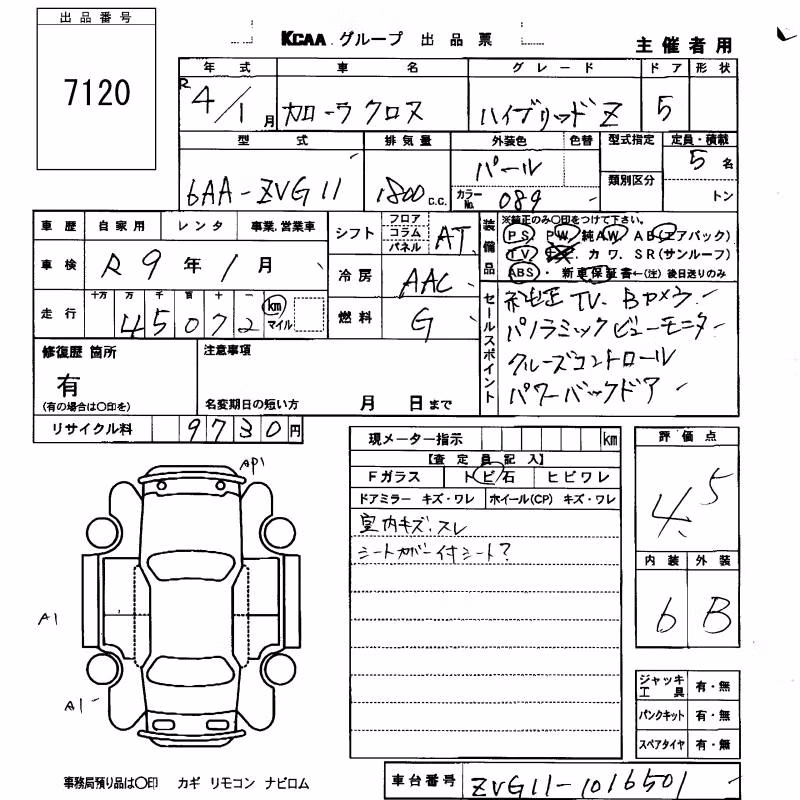 出品番号
7120
KCAA グループ 出品票
主催者用
年式 車名 グレード ドア 形状
R4/1月 カローラクロス ハイブリッドZ 5
型式 排気量 外装色 色替 型式指定 定員・積載
6AA-ZVG11 1800c.c. パール 類別区分 5名
カラーNo. 089 トン
車歴 自家用 レンタ 事業.営業車
車検 R9年1月
走行 十万 万 千 百 十 一
45072 km マイル
シフト フロア コラム パネル AT
冷房 AAC
燃料 G
装備品
※純正のみ〇印をつけて下さい。
PS. PW. 純AW. AB(エアバック)
TV. . カワ. SR(サンルーフ)
ABS・ 新車保証書←(注) 後日送りのみ
セールスポイント
純正TV. Bカメラ
パノラミックビューモニター
クルーズコントロール
パワーバックドア
修復歴 箇所
有
(有の場合は〇印を)
注意事項
名変期日の短い方 月 日まで
リサイクル料 9730円
現メーター指示 km
【査定員記入】
Fガラス トビ石 ヒビワレ
ドアミラー キズ・ワレ ホイール(CP) キズ・ワレ
室内キズ.スレ
シートカバー付シート?
評価点
4.5
内装 外装
6 B
AP1
A1
A1
ジャッキ工具 有・無
パンクキット 有・無
スペアタイヤ 有・無
事務局預り品は〇印 カギ リモコン ナビロム
車台番号 ZVG11-1016501